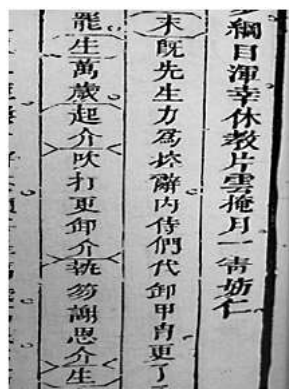 綱目渾幸休教片雲掩月一靑妨仁
末既先生力爲控辭內侍們代卸甲冑更了
罷生萬歲起介吹打更卸介執笏謝恩介生